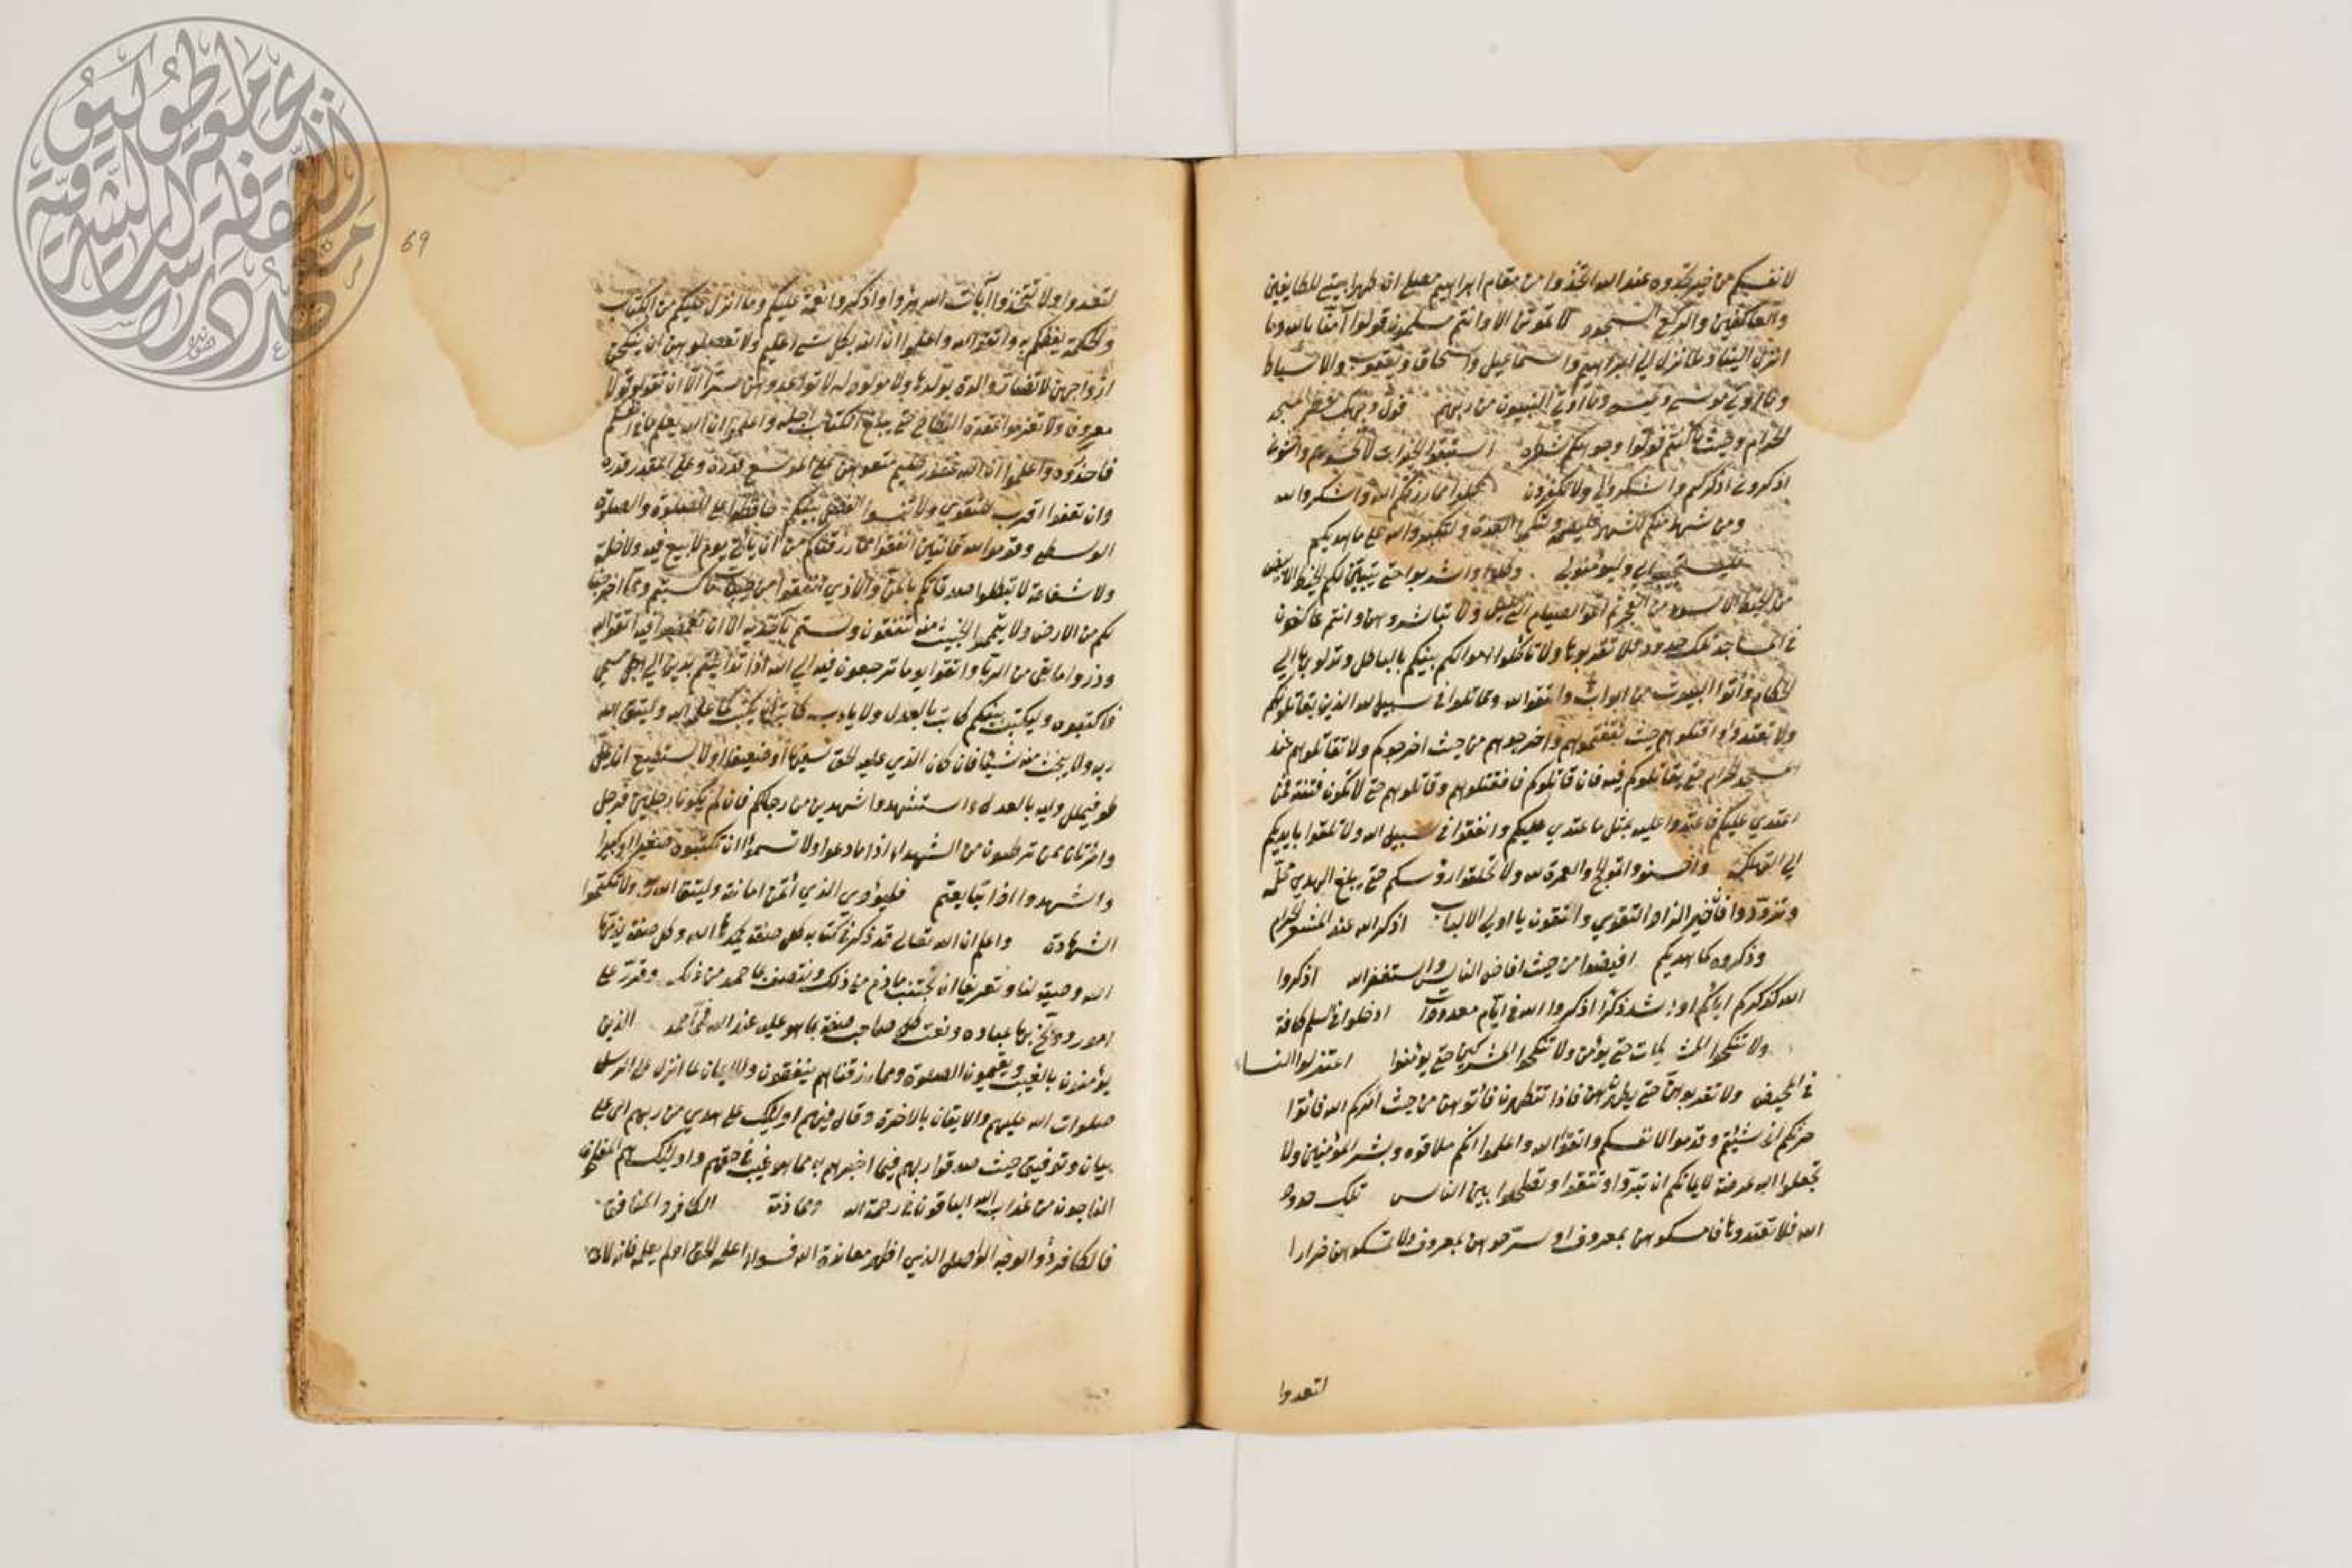 لانفسكم من خير تجدوه عند الله اتخذوا من مقام ابراهيم مصلى ان طهرا بيتي للطايفين
والعاكفين والركع السجود لا تموتن الا وانتم مسلمون قولوا آمنا بالله وما
انزل الينا وما انزل الي ابراهيم واسماعيل واسحاق ويعقوب والاسباط
وما اوتي موسى وعيسى وما اوتي النبيون من ربهم فول وجهك شطر المسجد
الحرام وحيث ما كنتم فولوا وجوهكم شطره استبقوا الخيرات لا تخشوهم واخشوني
اذكروني اذكركم واشكروا لي ولا تكفرون كلوا مما رزقكم الله واشكروا لله
ومن شهد منكم الشهر فليصمه ولتكملوا العدة ولتكبروا الله على ما هديكم
فليستجيبوا لي وليؤمنوا بي وكلوا واشربوا حتى يتبين لكم الخيط الابيض
من الخيط الاسود من الفجر ثم اتموا الصيام الي الليل ولا تباشروهن وانتم عاكفون
في المساجد تلك حدود فلا تقربوها ولا تاكلوا اموالكم بينكم بالباطل وتدلوا بها الي
الحكام وأتوا البيوت من ابوابها واتقوا الله وقاتلوا في سبيل الله الذين يقاتلونكم
ولا تعتدوا واقتلوهم حيث ثقفتموهم واخرجوهم من حيث اخرجوكم ولا تقاتلوهم عند
المسجد الحرام حتى يقاتلوكم فيه فان قاتلوكم فاقتلوهم وقاتلوهم حتى لا تكون فتنة فمن
اعتدي عليكم فاعتدوا عليه بمثل ما اعتدي عليكم وانفقوا في سبيل الله ولا تلقوا بايديكم
الي التهلكة واحسنوا واتموا الحج والعمرة لله ولا تحلقوا رؤسكم حتى يبلغ الهدي محله
وتزودوا فان خير الزاد التقوي واتقون يا اولي الالباب اذكر الله عند المشعر الحرام
وذكروه كما هديكم افيضوا من حيث افاض الناس واستغفر الله اذكروا
الله كذكركم اباءكم او اشد ذكرا اذكروا الله في ايام معدودات ادخلوا في السلم كافة
ولا تنكحوا المشركات حتى يؤمن ولا تنكحوا المشركين حتى يؤمنوا اعتزلوا النساء
في المحيض ولا تقربوهن حتى يطهرن فاذا تتطهرن فأتوهن من حيث امركم الله فأتوا
حرثكم انى شئتم وقدموا لانفسكم واتقوا الله واعلموا انكم ملاقوه وبشر المؤمنين ولا
تجعلوا الله عرضة لايمانكم ان تبروا وتتقوا وتصلحوا بين الناس تلك حدود
الله فلا تعتدوها فامسكوهن بمعروف او سرحوهن بمعروف ولا تمسكوهن ضرارا
لتعدوا
69
لتعدوا ولا تتخذوا آيات الله هزوا واذكروا نعمة عليكم وما انزل عليكم من الكتاب
والحكمة يعظكم به واتقوا الله واعلموا ان الله بكل شيء عليم ولا تعضلوهن ان ينكحن
ازواجهن لا تضار والدة بولدها ولا مولود له لا تواعدوهن سرا الا ان تقولوا قولا
معروفا ولا تعزموا عقدة النكاح حتى يبلغ الكتاب اجله واعلموا ان الله يعلم ما في انفسكم
فاحذروه واعلموا ان الله غفور حليم متعوهن على الموسع قدره وعلى المقتر قدره
وان تعفوا اقرب للتقوي ولا تنسوا الفضل بينكم حافظوا على الصلوة والصلوة
الوسطى وقوموا لله قانتين انفقوا مما رزقناكم من ان يأتي يوم لا بيع فيه ولا خلة
ولا شفاعة لا تبطلوا صدقاتكم بالمن والاذي انفقوا من طيبات ما كسبتم ومما اخرجنا
لكم من الارض ولا تيمموا الخبيث منه تنفقون ولستم بآخذيه الا ان تغمضوا فيه اتقوا الله
وذروا ما بقى من الربا واتقوا يوما ترجعون فيه الي الله اذا تداينتم بدين الي اجل مسمى
فاكتبوه وليكتب بينكم كاتب بالعدل ولا ياب كاتب ان يكتب كما علمه الله وليتق الله
ربه ولا يبخس منه شيئا فان كان الذي عليه الحق سفيها او ضعيفا او لا يستطيع ان يمل
هو فليملل وليه بالعدل واستشهدوا شهدين من رجالكم فان لم يكونا رجلين فرجل
وامرتان ممن ترضون من الشهداء اذا ما دعوا ولا تسموا ان تكتبوه صغيرا او كبيرا
واشهدوا اذا تبايعتم فليؤدي الذي ائتمن امانته وليتق الله ربه ولا تكتموا
الشهادة واعلم ان الله تعالى قد ذكر في كتابه كل صفة يحمدها الله وكل صفة يذمها
الله وصية لنا وتعريفا ان نجتنب ما ذم من ذلك ونتصف بما حمد من ذلك وقرر على
امور ووبخ بها عباده ونعت كل صاحب صفة بما هو عليه عند الله فمما حمد الذين
يؤمنون بالغيب ويقيمون الصلوة ومما رزقناهم ينفقون والايمان بما انزل على الرسل
صلوات الله عليهم والايقان بالاخرة وقال فيهم اوليك على هدي من ربهم اي على
بيان وتوفيق حيث صدقوا ربهم فيما اخبرهم به مما هو غيب في حقهم واوليك هم المفلحون
الناجون من عذاب الله الباقون في رحمة الله ومما ذمه الكافر والمنافق
فالكافر ذو الوجه الواحد الذي اظهر معاندة الله فسواء اعلمه الحق ام لم يعلمه فانه